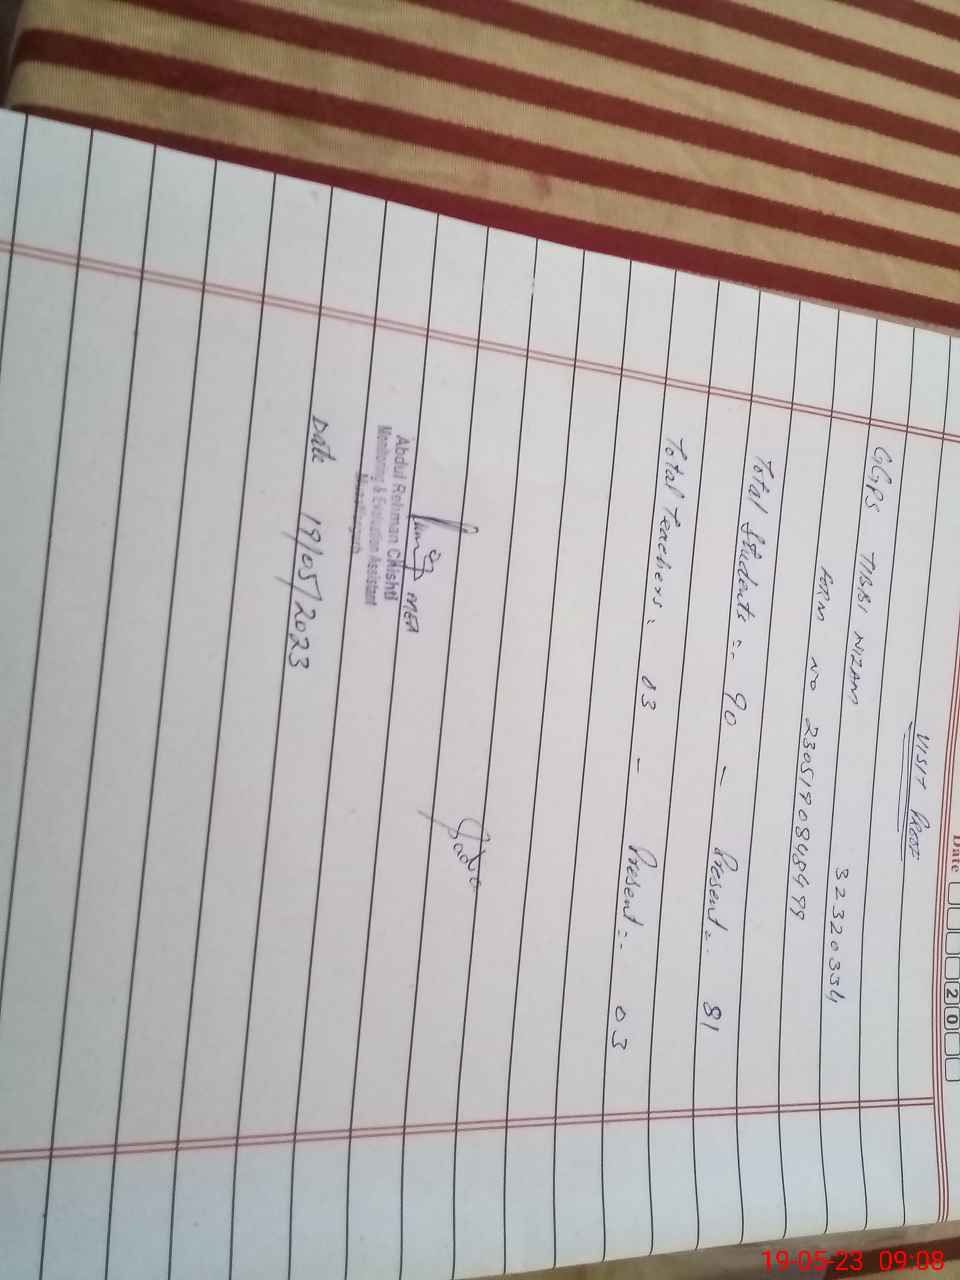 Date 2 0
VISIT Proof
GGPS TIBBI NIZAM 32320334
FORM NO 230519084849
Total Students :- 90 - Present :- 81
Total Teachers :- 03 - Present :- 03
MEA
Abdul Rehman Chishti
Monitoring & Evaluation Assistant
Muzaffargarh
Date 19/05/2023
19-05-23 09:08